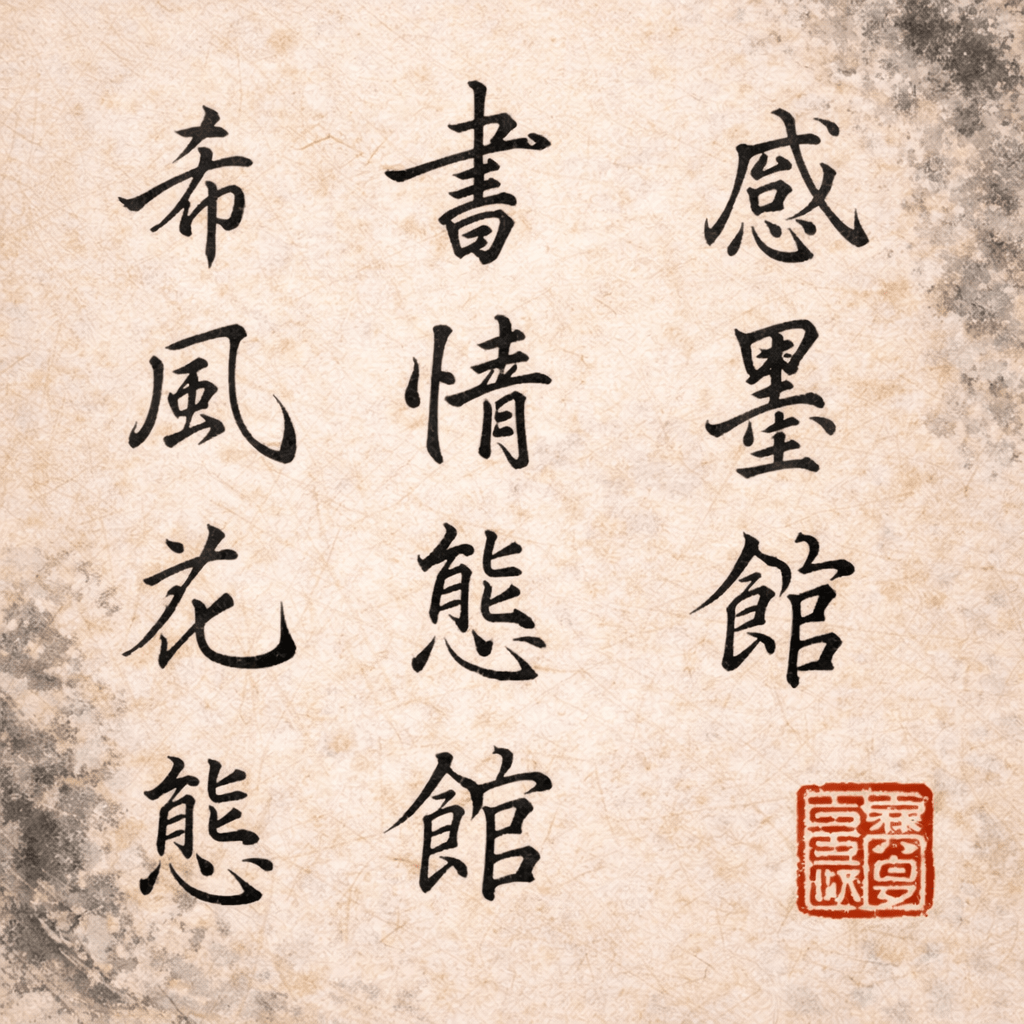 感墨館
書情態館
希風花態